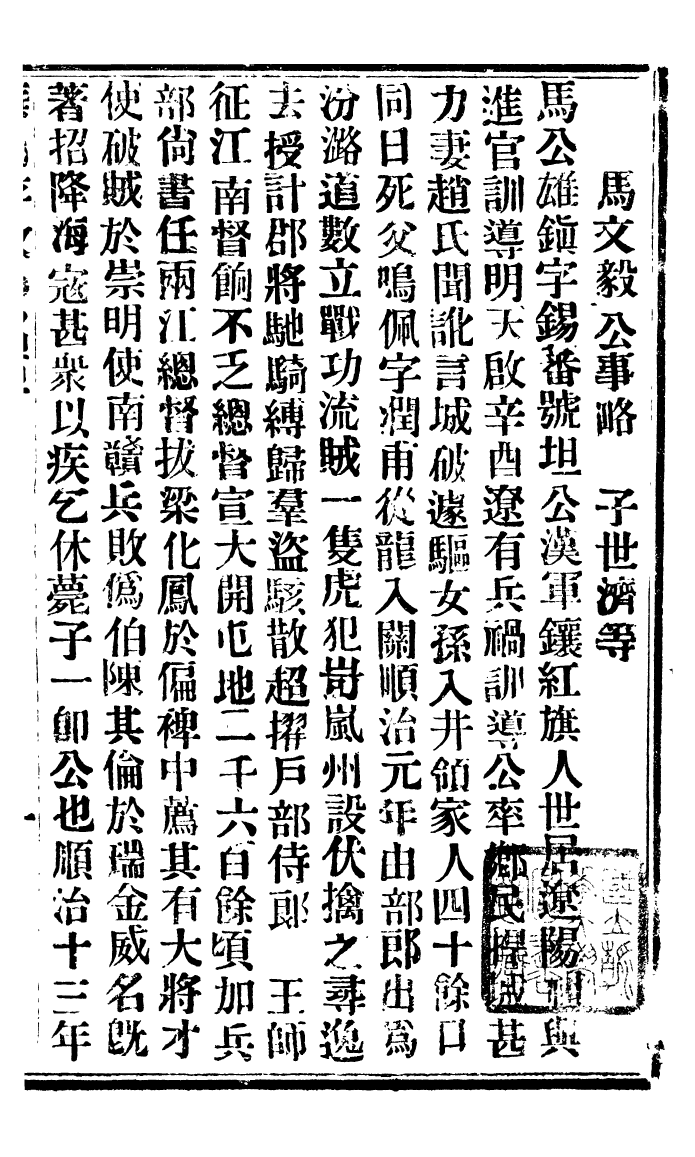 馬文毅公事略　子世濟等
馬公雄鎭字錫蕃號坦公漢軍鑲紅旗人世居遼陽祖與
進官訓導明天啟辛酉遼有兵禍訓導公率鄉民捍城甚
力妻趙氏聞訛言城破遽驅女孫入井領家人四十餘口
同日死父鳴佩字潤甫從龍入關順治元年由部郎出爲
汾潞道數立戰功流賊一隻虎犯岢嵐州設伏擒之尋逸
去授計郡將馳騎縛歸羣盜駭散超擢戸部侍郎　王師
征江南督餉不乏總督宣大開屯地二千六百餘頃加兵
部尙書任兩江總督拔梁化鳳於偏裨中薦其有大將才
使破賊於崇明使南贛兵敗僞伯陳其倫於瑞金威名旣
著招降海寇甚衆以疾乞休薨子一卽公也順治十三年